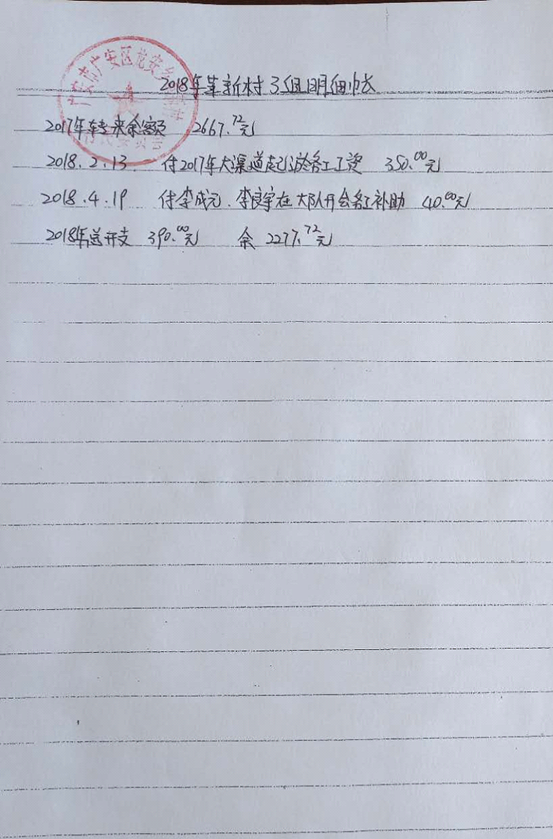 2018年革新村3组明细帐
2017年转来余额 2667.72元
2018.2.13 付2017年大渠道起淤务工工资 350.00元
2018.4.19 付李成元、李良宇在大队开会务工补助 40.00元
2018年总开支 390.00元 余 2277.72元
广安市广安区龙安乡